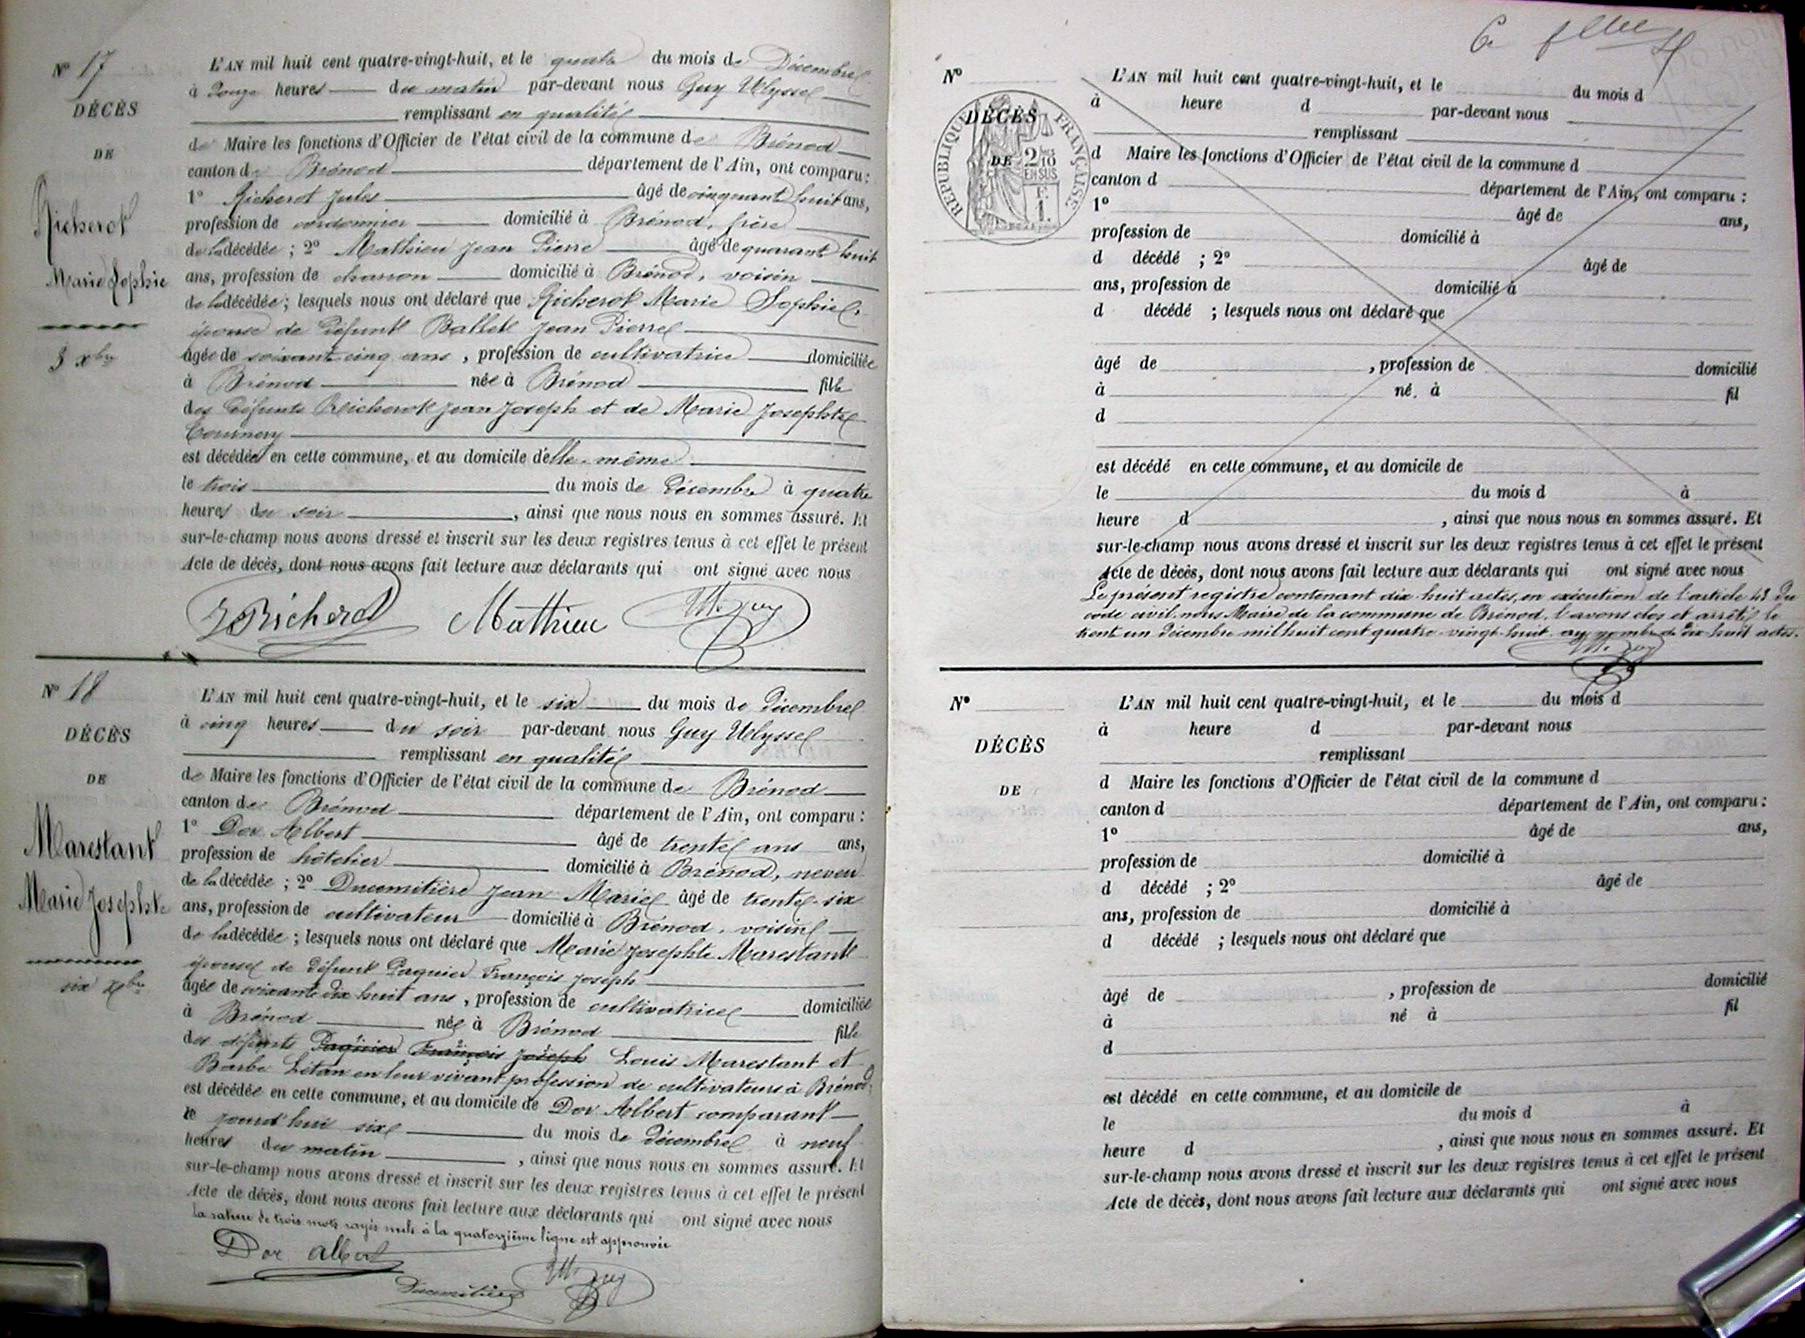 N° 17
DÉCÈS
DE
Richerot
Marie Sophie
3 Xbre
L'AN mil huit cent quatre-vingt-huit, et le quatre du mois de Décembre
à douze heures du matin par-devant nous Guy Ulysse
remplissant en qualité
de Maire les fonctions d'Officier de l'état civil de la commune de Brénod
canton de Brénod département de l'Ain, ont comparu :
1° Richerot Jules âgé de cinquant huit ans,
profession de cordonnier domicilié à Brénod, frère
de la décédée ; 2° Mathieu Jean Pierre âgé de quarant huit
ans, profession de charron domicilié à Brénod, voisin
de la décédée ; lesquels nous ont déclaré que Richerot Marie Sophie,
épouse de défunt Ballet Jean Pierre
âgée de soixante cinq ans , profession de cultivatrice domiciliée
à Brénod née à Brénod fille
des défunts Richerot Jean Joseph et de Marie Josephte
est décédée en cette commune, et au domicile d'elle-même
le trois du mois de décembre à quatre
heures du soir , ainsi que nous nous en sommes assuré. Et
sur-le-champ nous avons dressé et inscrit sur les deux registres tenus à cet effet le présent
Acte de décès, dont nous avons fait lecture aux déclarants qui ont signé avec nous
J Richerot Mathieu U. Guy
N° 18
DÉCÈS
DE
Marestant
Marie Josephte
six Xbre
L'AN mil huit cent quatre-vingt-huit, et le six du mois de décembre
à cinq heures du soir par-devant nous Guy Ulysse
remplissant en qualité
de Maire les fonctions d'Officier de l'état civil de la commune de Brénod
canton de Brénod département de l'Ain, ont comparu :
1° Dor Albert âgé de trente ans ans,
profession de hôtelier domicilié à Brénod, neveu
de la décédée ; 2° Ducomitière Jean Marie âgé de trente-six
ans, profession de cultivateur domicilié à Brénod, voisin
de la décédée ; lesquels nous ont déclaré que Marie Josephte Marestant
épouse de défunt Paquier François Joseph
âgée de soixante dix huit ans , profession de cultivatrice domiciliée
à Brénod née à Brénod fille
des défunts Paquier François Joseph Louis Marestant et
Barbe Létan en leur vivant profession de cultivateurs à Brénod,
est décédée en cette commune, et au domicile de Dor Albert comparant
le jourd'hui six du mois de décembre à neuf
heures du matin , ainsi que nous nous en sommes assuré. Et
sur-le-champ nous avons dressé et inscrit sur les deux registres tenus à cet effet le présent
Acte de décès, dont nous avons fait lecture aux déclarants qui ont signé avec nous
la rature de trois mots rayés nuls à la quatorzième ligne est approuvée
Dor Albert
Ducomitière U. Guy
N°
DÉCÈS
DE
RÉPUBLIQUE FRANÇAISE
2/10
EN SUS
F.
1.
L'AN mil huit cent quatre-vingt-huit, et le du mois d
à heure d par-devant nous
remplissant
d Maire les fonctions d'Officier de l'état civil de la commune d
canton d département de l'Ain, ont comparu :
1° âgé de ans,
profession de domicilié à
d décédé ; 2° âgé de
ans, profession de domicilié à
d décédé ; lesquels nous ont déclaré que
âgé de , profession de domicilié
à né à fil
d
est décédé en cette commune, et au domicile de
le du mois d à
heure d , ainsi que nous nous en sommes assuré. Et
sur-le-champ nous avons dressé et inscrit sur les deux registres tenus à cet effet le présent
Acte de décès, dont nous avons fait lecture aux déclarants qui ont signé avec nous
Le présent registre contenant dix huit actes, en exécution de l'article 43 du
code civil, nous Maire de la commune de Brénod, l'avons clos et arrêté le
trent un décembre mil huit cent quatre-vingt-huit au nombre de dix huit actes.
U. Guy
N°
DÉCÈS
DE
L'AN mil huit cent quatre-vingt-huit, et le du mois d
à heure d par-devant nous
remplissant
d Maire les fonctions d'Officier de l'état civil de la commune d
canton d département de l'Ain, ont comparu :
1° âgé de ans,
profession de domicilié à
d décédé ; 2° âgé de
ans, profession de domicilié à
d décédé ; lesquels nous ont déclaré que
âgé de , profession de domicilié
à né à fil
d
est décédé en cette commune, et au domicile de
le du mois d à
heure d , ainsi que nous nous en sommes assuré. Et
sur-le-champ nous avons dressé et inscrit sur les deux registres tenus à cet effet le présent
Acte de décès, dont nous avons fait lecture aux déclarants qui ont signé avec nous